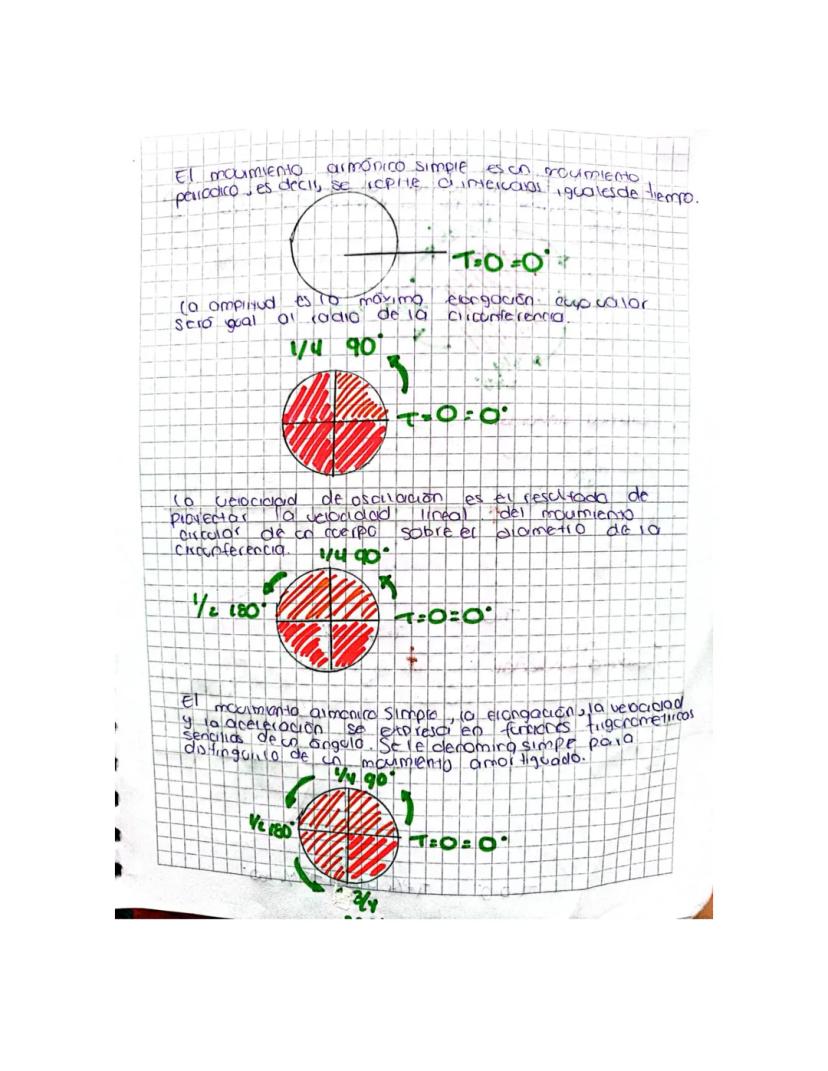 El movimiento armónico simple es un movimiento
periodico, es decir, se repite a intervalos iguales de tiempo.
T=0=0°
la amplitud es la máxima elongación cuyo valor
será igual al radio de la circunferencia.
1/4 90°
T=0=0°
la velocidad de oscilación es el resultado de
proyectar la velocidad lineal del movimiento
circular de un cuerpo sobre el diametro de la
circunferencia.
1/4 90°
1/2 180°
T=0=0°
El movimiento armonico simple, la elongación, la velocidad
y la aceleración se expresa en funciones trigonometricas
sencillas de un ángulo. Se le denomina simpe para
distinguirlo de un movimiento amortiguado.
1/4 90°
1/2 180°
T=0=0°
3/4